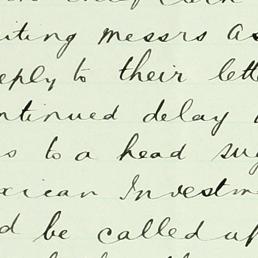 iting messrs As
eply to their lett
ntinued delay
s to a head sug
xican Investm
d be called up